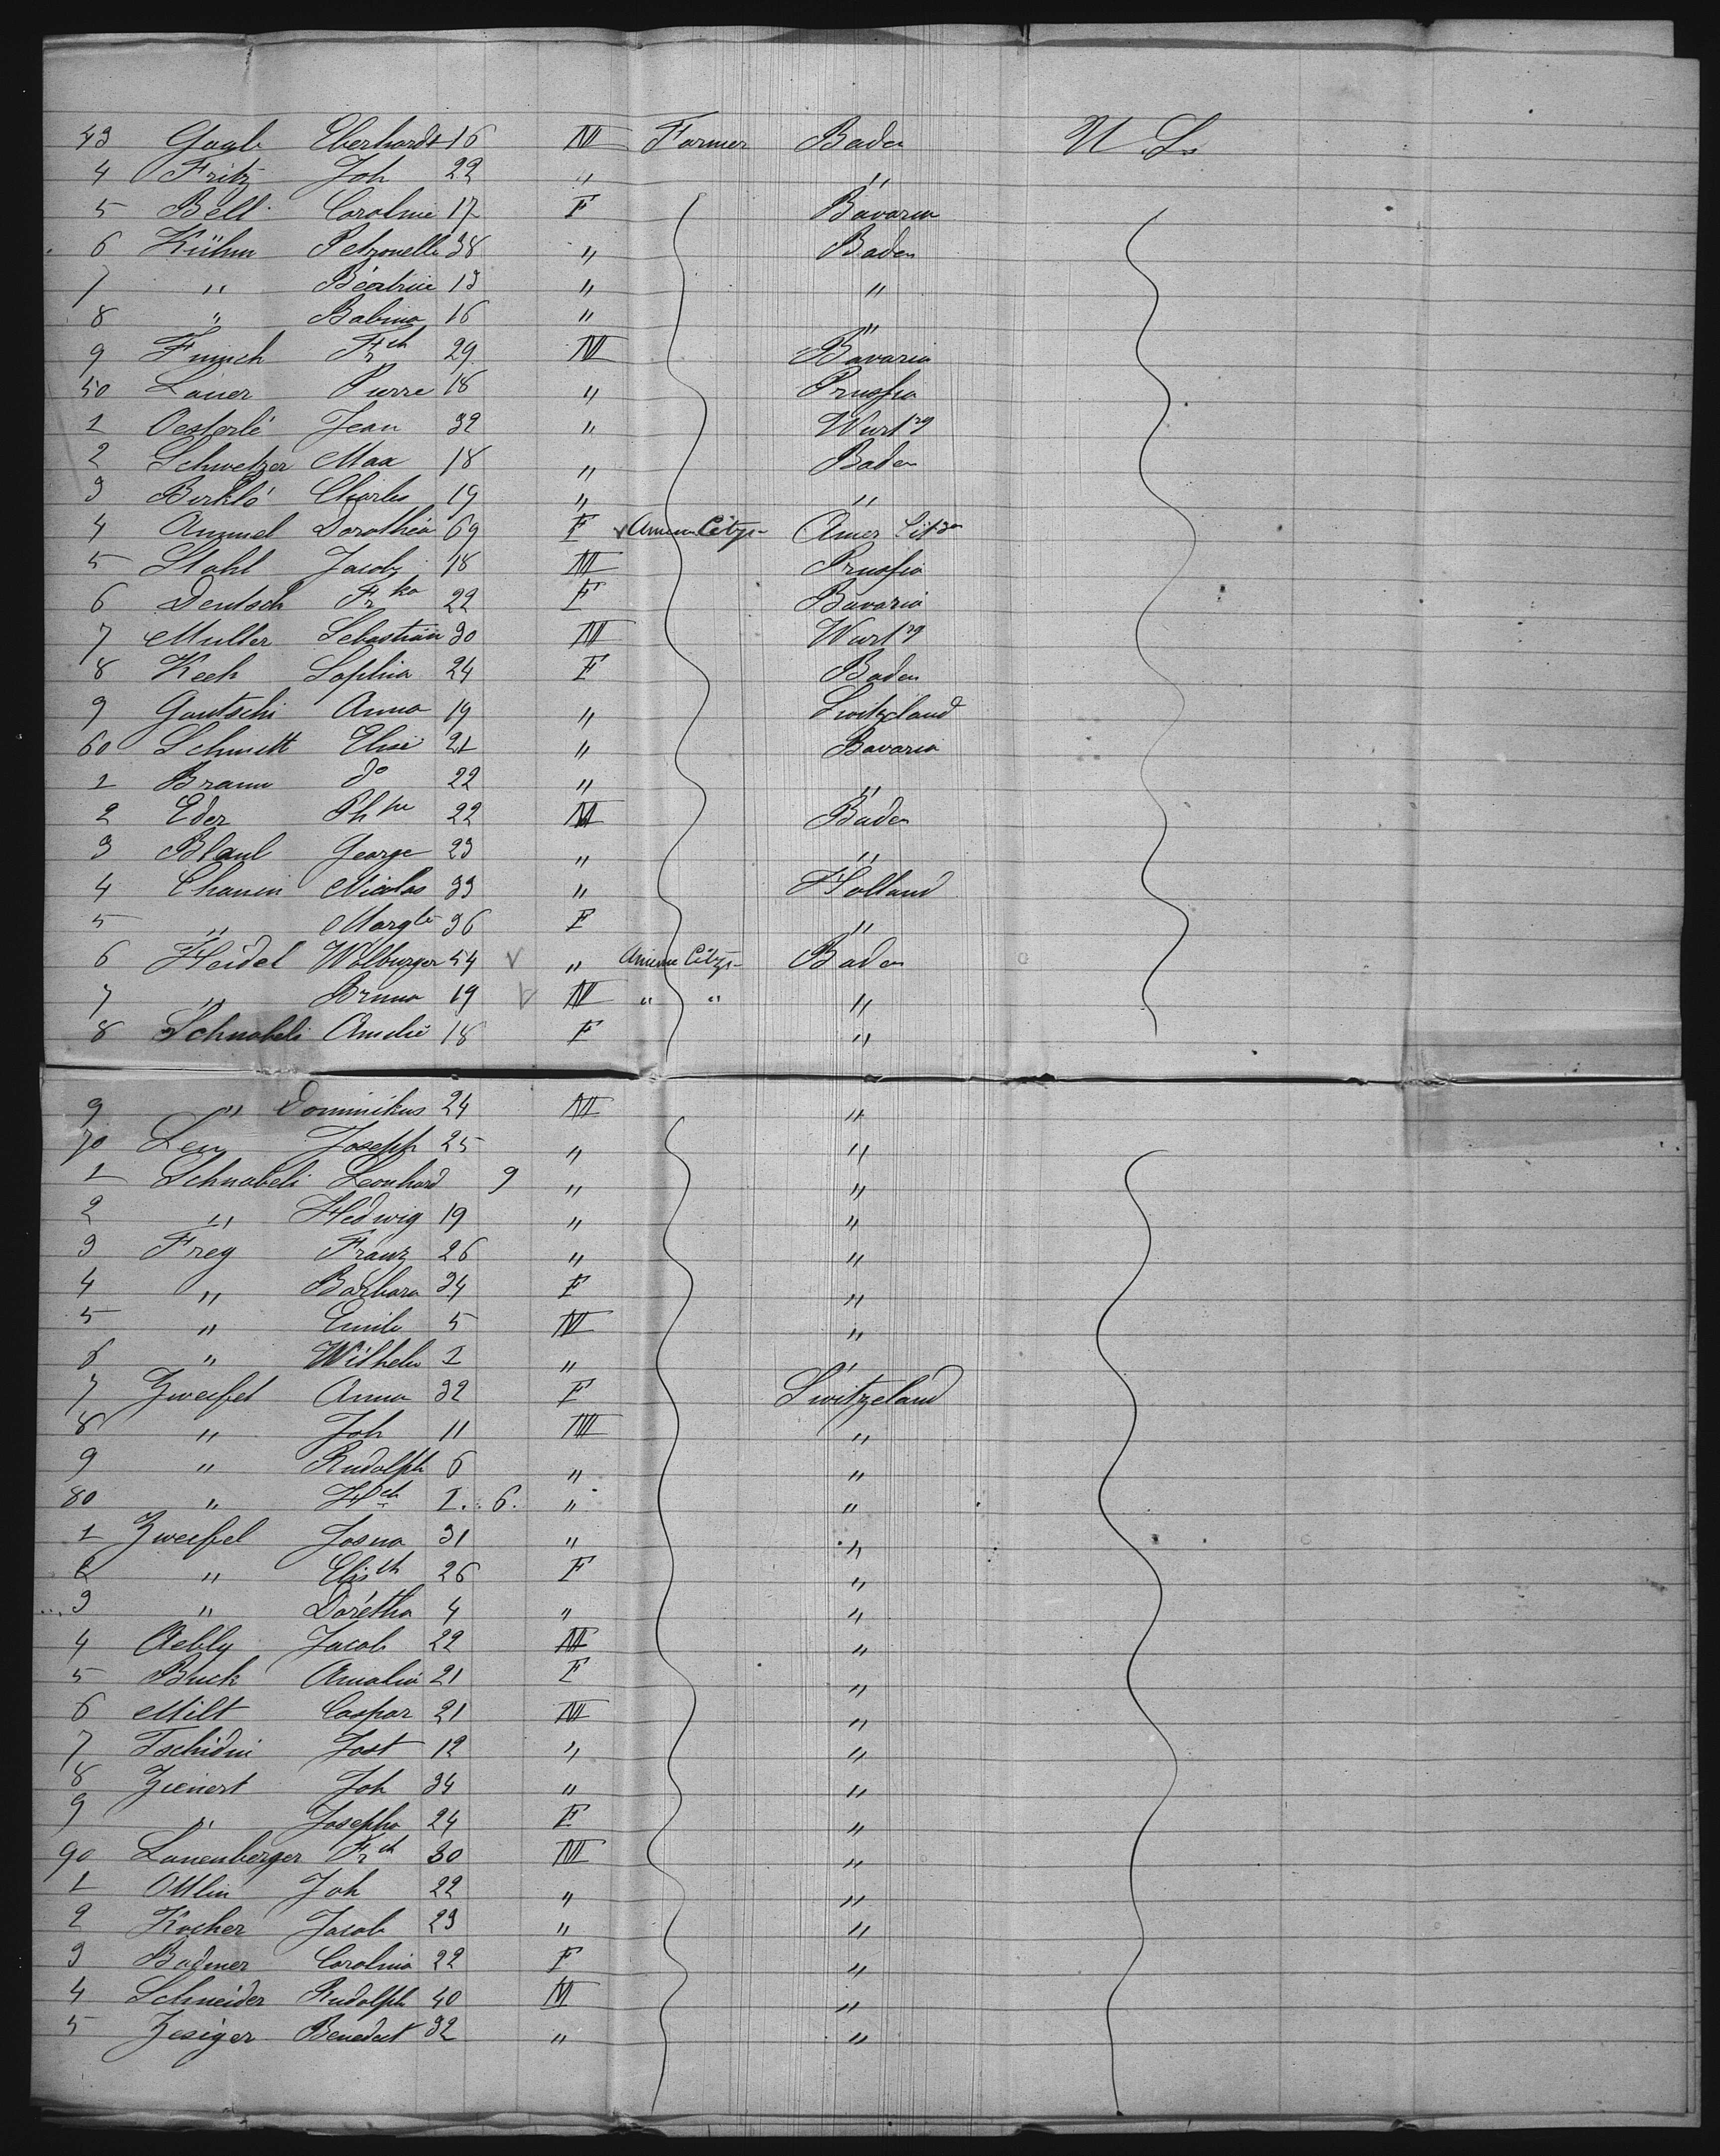 43 Gagli Eberhardt 16 M Farmer Baden U. S.
4 Fritz Joh 22 " "
5 Bell Caroline 17 F Bavaria
6 Kühm Petronelle 38 " Baden
7 " Béatrice 13 " "
8 " Babina 16 " "
9 Fruich Frch 29 M Bavaria
50 Lauer Pierre 18 " Prussia
1 Oesterlé Jean 32 " Wurtrg
2 Schwetzer Max 18 " Baden
3 Berklé Charles 19 " "
4 Anzmel Dorothéa 69 F v Americ Citzn Amer Citzn
5 Stahl Jacob 18 M Prussia
6 Deutsch Frka 22 F Bavaria
7 Muller Sebastian 30 M Wurtrg
8 Kech Sophia 24 F Baden
9 Gautschi Anna 19 " Switzeland
60 Schmitt Elise 21 " Bavaria
1 Braun do 22 " "
2 Eder Phpe 22 M Baden
3 Blaul George 23 " "
4 Chanin Nicolas 33 " Holland
5 " Margte 36 F "
6 Heidel Walburger 54 v " Americ Citzn Baden
7 " Bruno 19 v M " " "
8 Schnabeli Amelie 18 F "
9 " Dominikus 24 M "
70 Leu Joseph 25 " "
1 Schnabeli Leonhard 9 " "
2 " Hedwig 19 " "
3 Frey Franz 26 " "
4 " Barbara 34 F "
5 " Emile 5 M "
6 " Wilhelm 1 " "
7 Zweifel Anna 32 F Switzeland
8 " Joh 11 M "
9 " Rudolph 6 " "
80 " Hch 1. 6. " "
1 Zweifel Josua 31 " "
2 " Elisth 26 F "
3 " Dorétha 4 " "
4 Aebly Jacob 22 M "
5 Buck Amalia 21 F "
6 Milt Caspar 21 M "
7 Tschidni Jost 12 " "
8 Zienert Joh 34 " "
9 " Josepha 24 F "
90 Lanenberger Frch 30 M "
1 Ottlin Joh 22 " "
2 Kocher Jacob 23 " "
3 Badmer Carolina 22 F "
4 Schneider Rudolph 40 M "
5 Zesiger Benedect 32 " "